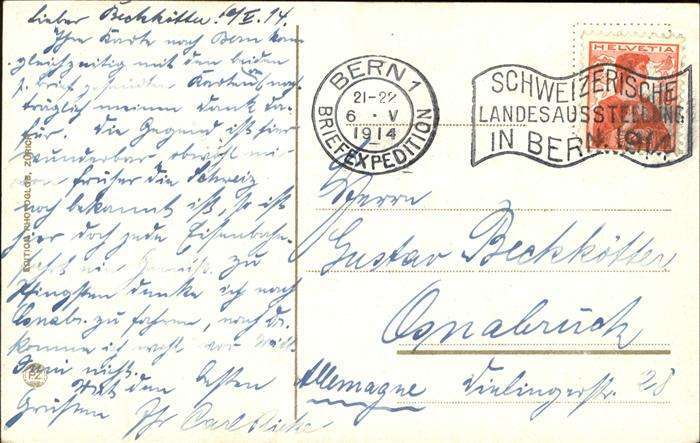 Lieber Beckkötter. 6/V. 14.
Ihre Karte nach Bern kam
gleichzeitig mit den beiden
z. Brief Karten nach
träglich meinen Dank da-
für. Die Gegend ist hier
wunderbar obwohl mir
von früher die Schweiz
noch bekannt ist, so ist
hier doch jede Eisenbahn-
fahrt ein zu
Pfingsten denke ich nach
Osnabr. zu fahren, nach
komme ich wohl vor
Juni nicht.
Mit den besten
Grüssen Ihr Carl
EDITION PHOTOGLOB, ZÜRICH
PZ
BERN 1
21-22
6 · V
1914
BRIEFEXPEDITION
SCHWEIZERISCHE
LANDESAUSSTELLUNG
IN BERN 1914
HELVETIA
Herrn
Gustav Beckkötter
Osnabrück
Allemagne Dielingerstr. 28